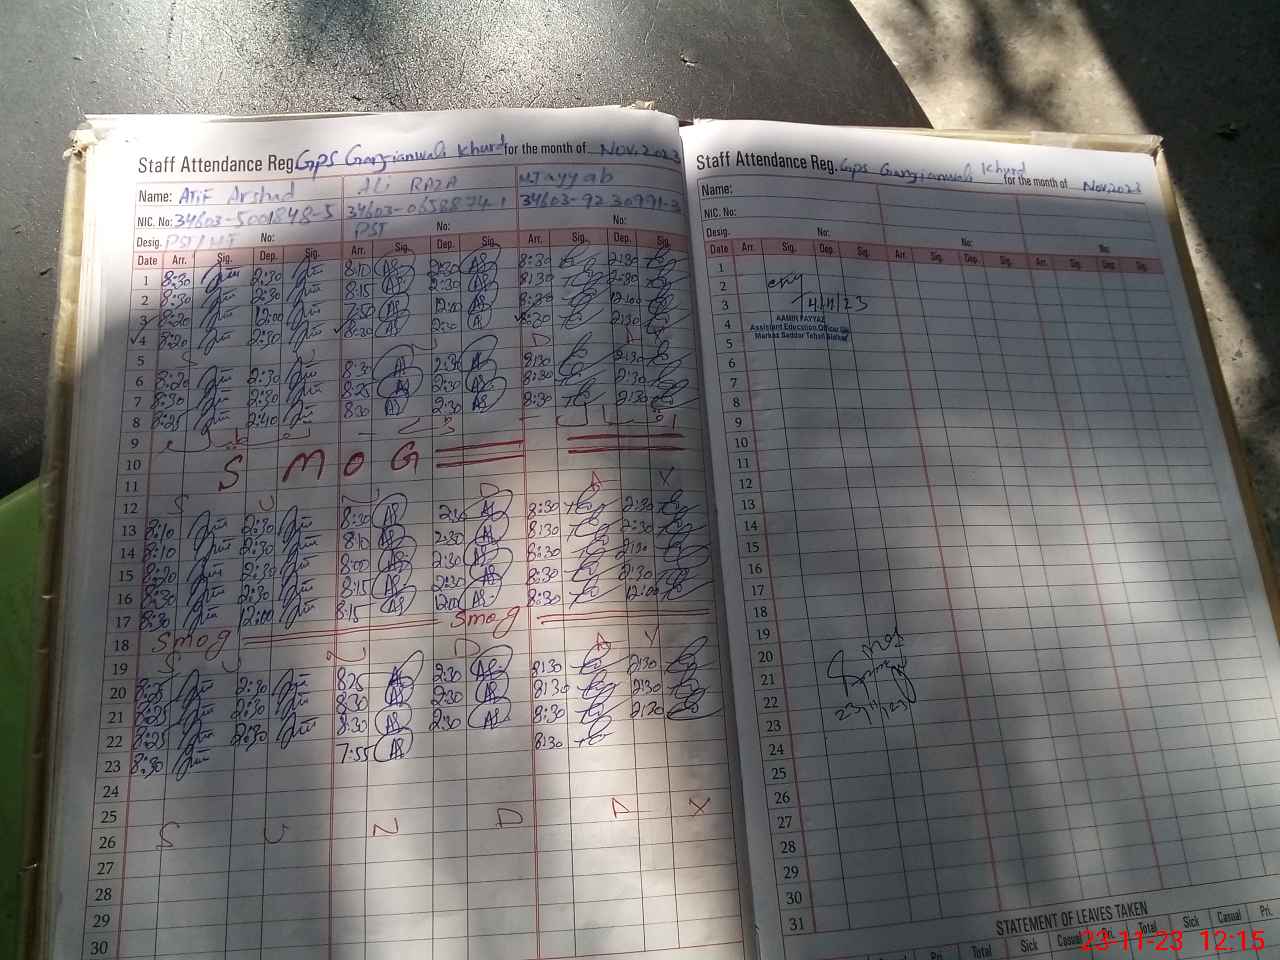 Staff Attendance Reg. GPS Gunjianwali Khurd for the month of Nov, 2023
Name: Atif Arshad ALi RAZA M Tayyab
NIC. No: 34603-5001848-5 34603-0658874-1 34603-9230991-3
Desig. PST/HT No: PST No:
Date Arr. Sig. Dep. Sig. Arr. Sig. Dep. Sig. Arr. Sig. Dep. Sig.
1 8:30 2:30 8:10 2:30 8:30 2:30
2 8:30 2:30 8:15 2:30 8:30 2:30
3 8:20 12:00 7:50 12:00 8:30 12:00
4 8:20 2:30 8:30 2:30 8:30 2:30
5
6 8:20 2:30 8:30 2:30 8:30 2:30
7 8:30 2:30 8:25 2:30 8:30 2:30
8 8:25 2:40 8:30 2:30 8:30 2:30
9
10 SMOG
11
12 S U N D A Y
13 8:10 2:30 8:30 2:30 8:30 2:30
14 8:10 2:30 8:10 2:30 8:30 2:30
15 8:20 2:30 8:00 2:30 8:30 2:30
16 8:30 2:30 8:15 2:30 8:30 2:30
17 8:30 12:00 8:15 12:00 8:30 12:00
18 Smog Smog
19 S U N D A Y
20 8:25 2:30 8:25 2:30 8:30 2:30
21 8:25 2:30 8:30 2:30 8:30 2:30
22 8:25 2:30 8:30 2:30 8:30 2:30
23 8:30 7:55 8:30
24
25
26 S U N D A Y
27
28
29
30
Staff Attendance Reg. GPS Gunjianwali Khurd for the month of Nov, 2023
Name:
NIC. No:
Desig. No: No:
Date Arr. Sig. Dep. Sig. Arr. Sig. Dep. Sig. Arr. Sig. Dep. Sig.
1
2
3 4/11/23
AAMIR FAYYAZ
4 Assistant Education Officer
Markaz Saddar Tehsil
5
6
7
8
9
10
11
12
13
14
15
16
17
18
19
20
21
22 23/11/23
23
24
25
26
27
28
29
30
31
STATEMENT OF LEAVES TAKEN
Pri. Total Sick Casual Pri. Total Sick Casual Pri.
23-11-23 12:15